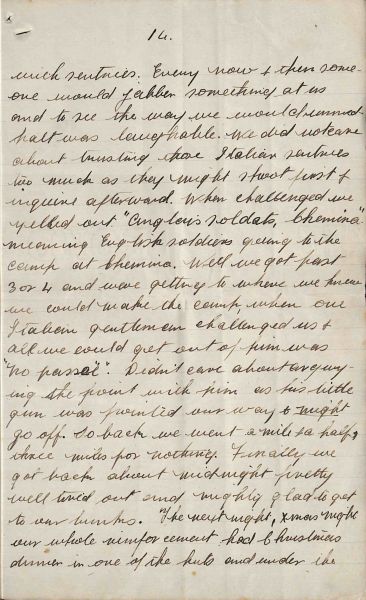 14.
with sentries. Every now & then some-
one would jabber something at us
and to see the way we would
halt was laughable. We did not care
about trusting those Italian sentries
too much as they might shoot first &
inquire afterward. When challenged we
yelled out "Anglais soldats, Chemina"
meaning English soldiers going to the
camp at Chemina. Well we got past
3 or 4 and were getting to where we knew
we could make the camp, when one
Italian gentleman challenged us &
all we could get out of him was
"No passa". Didn't care about arguy-
ing the point with him as his little
gun was pointed our way & might
go off. So back we went a mile & a half,
three miles for nothing. Finally we
got back about midnight pretty
well tired out and mighty glad to get
to our bunks. The next night, Xmas night
our whole reinforcement had Christmas
dinner in one of the huts and under the